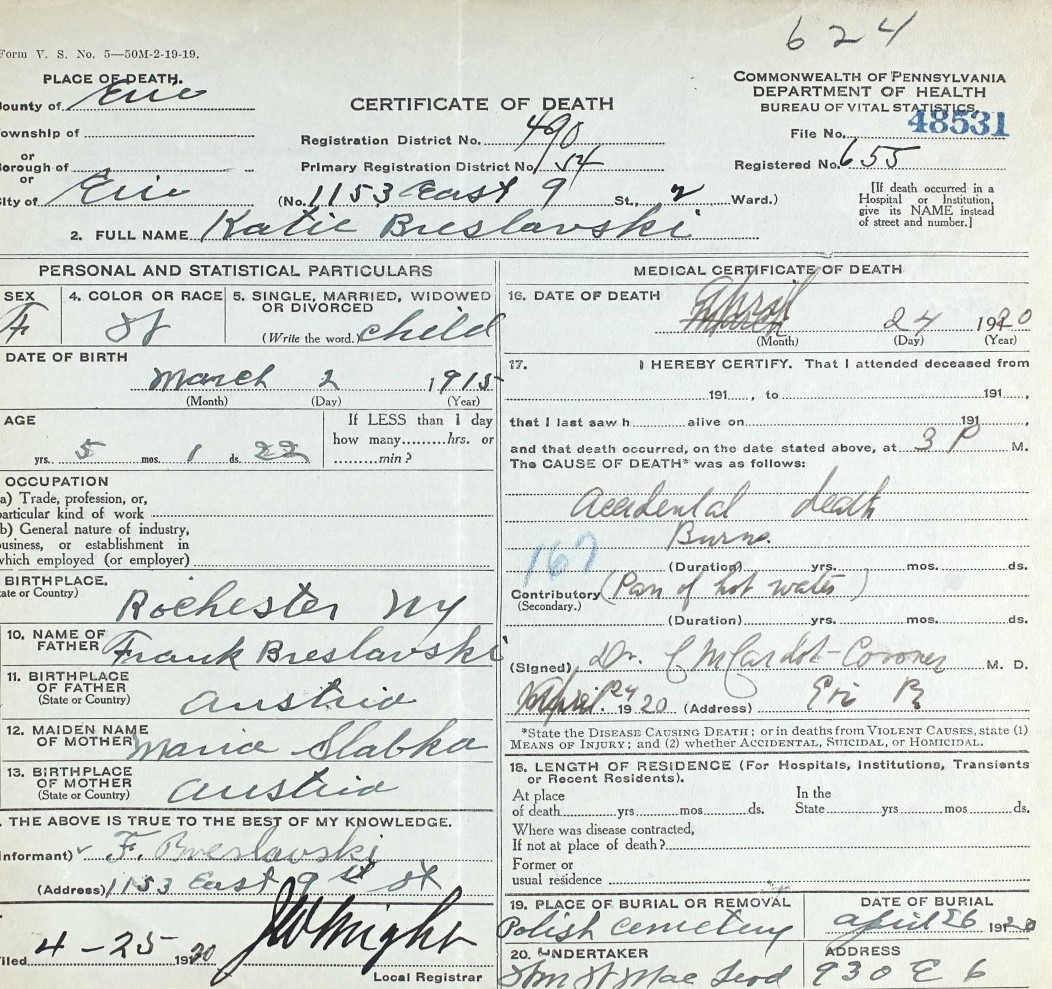 624
Form V. S. No. 5—50M-2-19-19.
PLACE OF DEATH.
County of Erie
Township of
or
Borough of
or
City of Erie
CERTIFICATE OF DEATH
Registration District No. 490
Primary Registration District No. 154
(No. 1153 East 9 St., 2 Ward.)
COMMONWEALTH OF PENNSYLVANIA
DEPARTMENT OF HEALTH
BUREAU OF VITAL STATISTICS
File No. 48531
Registered No. 655
[If death occurred in a
Hospital or Institution,
give its NAME instead
of street and number.]
2. FULL NAME Katie Breslavski
PERSONAL AND STATISTICAL PARTICULARS
SEX
F
4. COLOR OR RACE
W
5. SINGLE, MARRIED, WIDOWED
OR DIVORCED
(Write the word.) child
DATE OF BIRTH
March 2 1915
(Month) (Day) (Year)
AGE
yrs. 5 mos. 1 ds. 22
If LESS than 1 day
how many........hrs. or
.........min?
OCCUPATION
a) Trade, profession, or,
particular kind of work
b) General nature of industry,
business, or establishment in
which employed (or employer)
BIRTHPLACE.
(State or Country)
Rochester NY
10. NAME OF
FATHER Frank Breslavski
11. BIRTHPLACE
OF FATHER
(State or Country)
Austria
12. MAIDEN NAME
OF MOTHER Maria Slabka
13. BIRTHPLACE
OF MOTHER
(State or Country)
Austria
THE ABOVE IS TRUE TO THE BEST OF MY KNOWLEDGE.
Informant) F. Breslavski
(Address) 1153 East 9 st st
Filed 4-25 1920
JWWright
Local Registrar
MEDICAL CERTIFICATE OF DEATH
16. DATE OF DEATH
April 24 1920
(Month) (Day) (Year)
17. I HEREBY CERTIFY. That I attended deceased from
191...., to 191....,
that I last saw h........alive on 191....,
and that death occurred, on the date stated above, at 3 P M.
The CAUSE OF DEATH* was as follows:
Accidental death
Burns.
167
(Duration) yrs. mos. ds.
Contributory (Pan of hot water)
(Secondary.)
(Duration) yrs. mos. ds.
(Signed) Dr. Cardot-Coroner M. D.
April 24 1920 (Address) Erie Pa
*State the DISEASE CAUSING DEATH; or in deaths from VIOLENT CAUSES, state (1)
MEANS OF INJURY; and (2) whether ACCIDENTAL, SUICIDAL, or HOMICIDAL.
18. LENGTH OF RESIDENCE (For Hospitals, Institutions, Transients
or Recent Residents).
At place
of death........yrs.......mos.......ds.
In the
State.......yrs.......mos.......ds.
Where was disease contracted,
If not at place of death?
Former or
usual residence
19. PLACE OF BURIAL OR REMOVAL
Polish Cemetery
DATE OF BURIAL
April 26 1920
20. UNDERTAKER
Wm W Mac Leod
ADDRESS
930 E 6